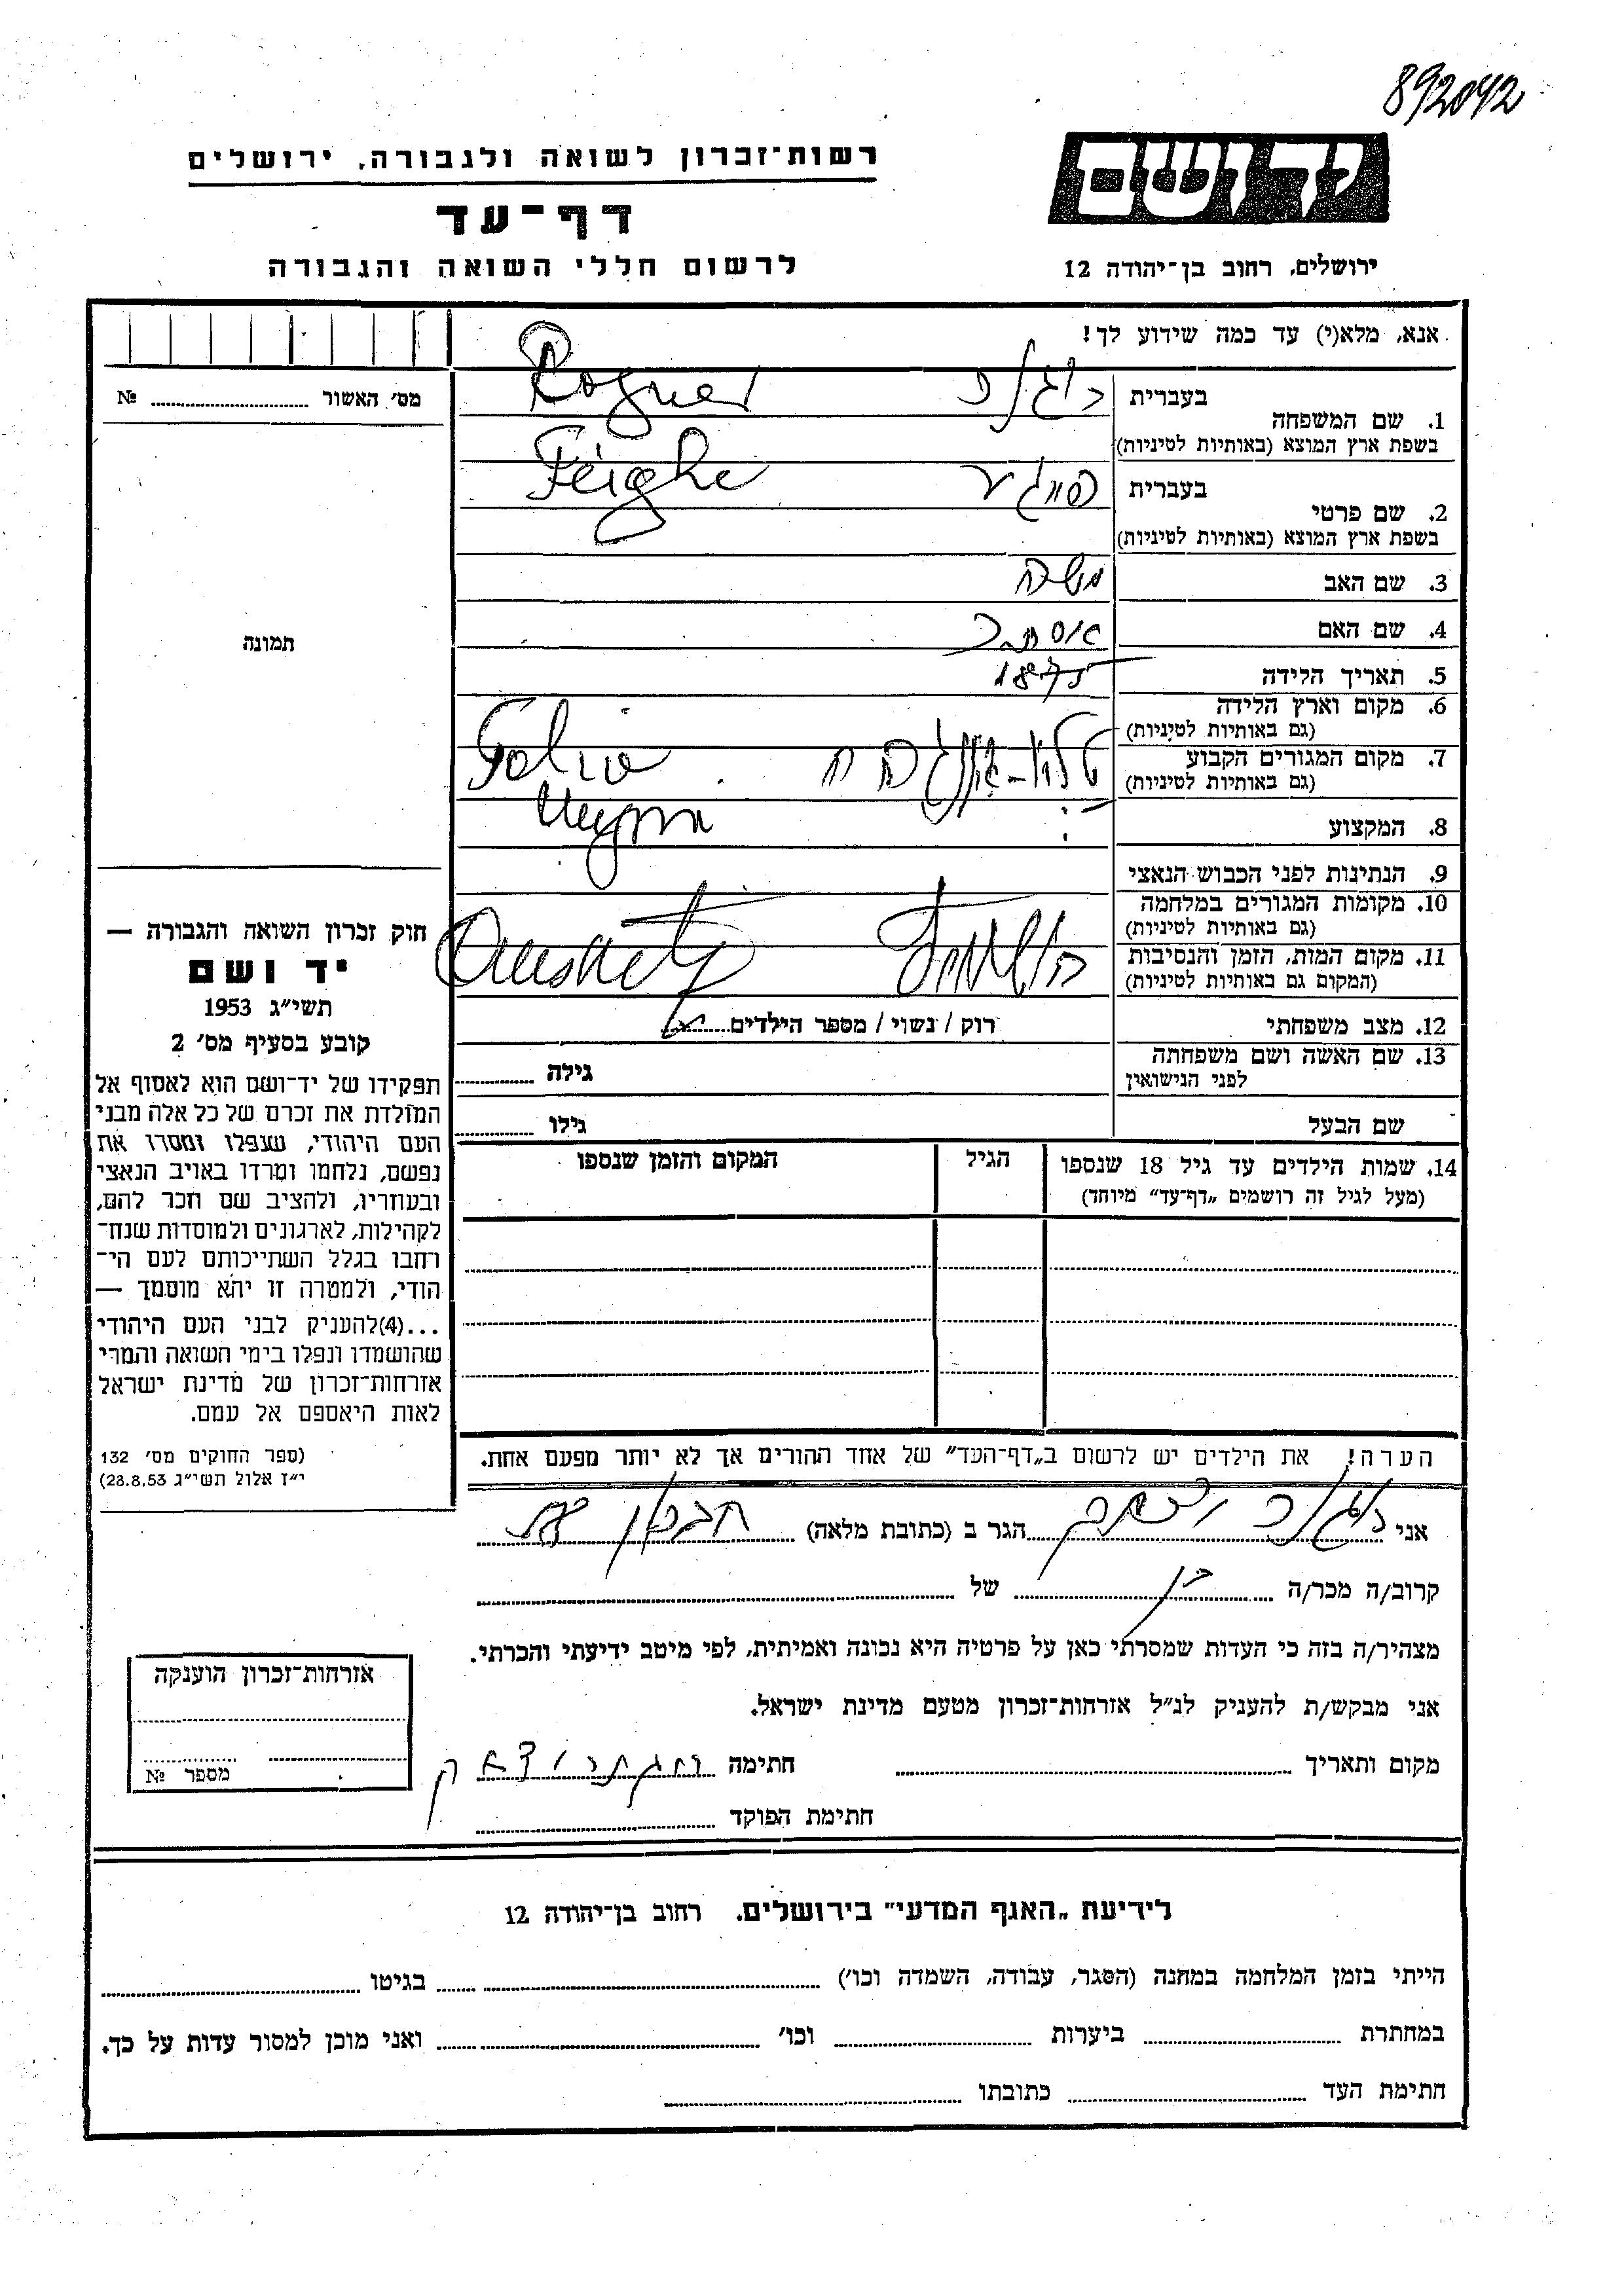 892042
ידושם
ירושלים, רחוב בן־יהודה 12
רשות־זכרון לשואה ולגבורה, ירושלים
דף־עד
לרשום חללי השואה והגבורה
אנא, מלא(י) עד כמה שידוע לך!
מס׳ האשור № 
1. שם המשפחה בעברית Rogner
בשפת ארץ המוצא (באותיות לטיניות)
2. שם פרטי בעברית Feighe
בשפת ארץ המוצא (באותיות לטיניות)
3. שם האב משה
4. שם האם אסתר
5. תאריך הלידה 1875
6. מקום וארץ הלידה
(גם באותיות לטיניות)
7. מקום המגורים הקבוע
(גם באותיות לטיניות)
8. המקצוע
9. הנתינות לפני הכבוש הנאצי
10. מקומות המגורים במלחמה
(גם באותיות לטיניות)
11. מקום המות, הזמן והנסיבות
(המקום גם באותיות לטיניות)
12. מצב משפחתי רוק / נשוי / מספר הילדים
13. שם האשה ושם משפחתה
לפני הנישואין גילה
שם הבעל גילו
14. שמות הילדים עד גיל 18 שנספו הגיל המקום והזמן שנספו
(מעל לגיל זה רושמים „דף־עד” מיוחד)
הערה! את הילדים יש לרשום ב„דף־העד” של אחד ההורים אך לא יותר מפעם אחת.
תמונה
חוק זכרון השואה והגבורה —
יד ושם
תשי״ג 1953
קובע בסעיף מס׳ 2
תפקידו של יד־ושם הוא לאסוף אל
המולדת את זכרם של כל אלה מבני
העם היהודי, שנפלו ומסרו את
נפשם, נלחמו ומרדו באויב הנאצי
ובעוזריו, ולהציב שם וזכר להם,
לקהילות, לארגונים ולמוסדות שנח־
רחבו בגלל השתייכותם לעם הי־
הודי, ולמטרה זו יהא מוסמך —
...(4)להעניק לבני העם היהודי
שהושמדו ונפלו בימי השואה והמרי
אזרחות־זכרון של מדינת ישראל
לאות היאספם אל עמם.
(ספר החוקים מס׳ 132
י״ז אלול תשי״ג 28.8.53)
אני הגר ב (כתובת מלאה)
קרוב/ה מכר/ה בן של
מצהיר/ה בזה כי העדות שמסרתי כאן על פרטיה היא נכונה ואמיתית, לפי מיטב ידיעתי והכרתי.
אני מבקש/ת להעניק לנ״ל אזרחות־זכרון מטעם מדינת ישראל.
מקום ותאריך חתימה
חתימת הפוקד
אזרחות־זכרון הוענקה
מספר №
לידיעת „האגף המדעי” בירושלים. רחוב בן־יהודה 12
הייתי בזמן המלחמה במחנה (הסגר, עבודה, השמדה וכו׳) בגיטו
במחתרת ביערות וכו׳ ואני מוכן למסור עדות על כך.
חתימת העד כתובתו